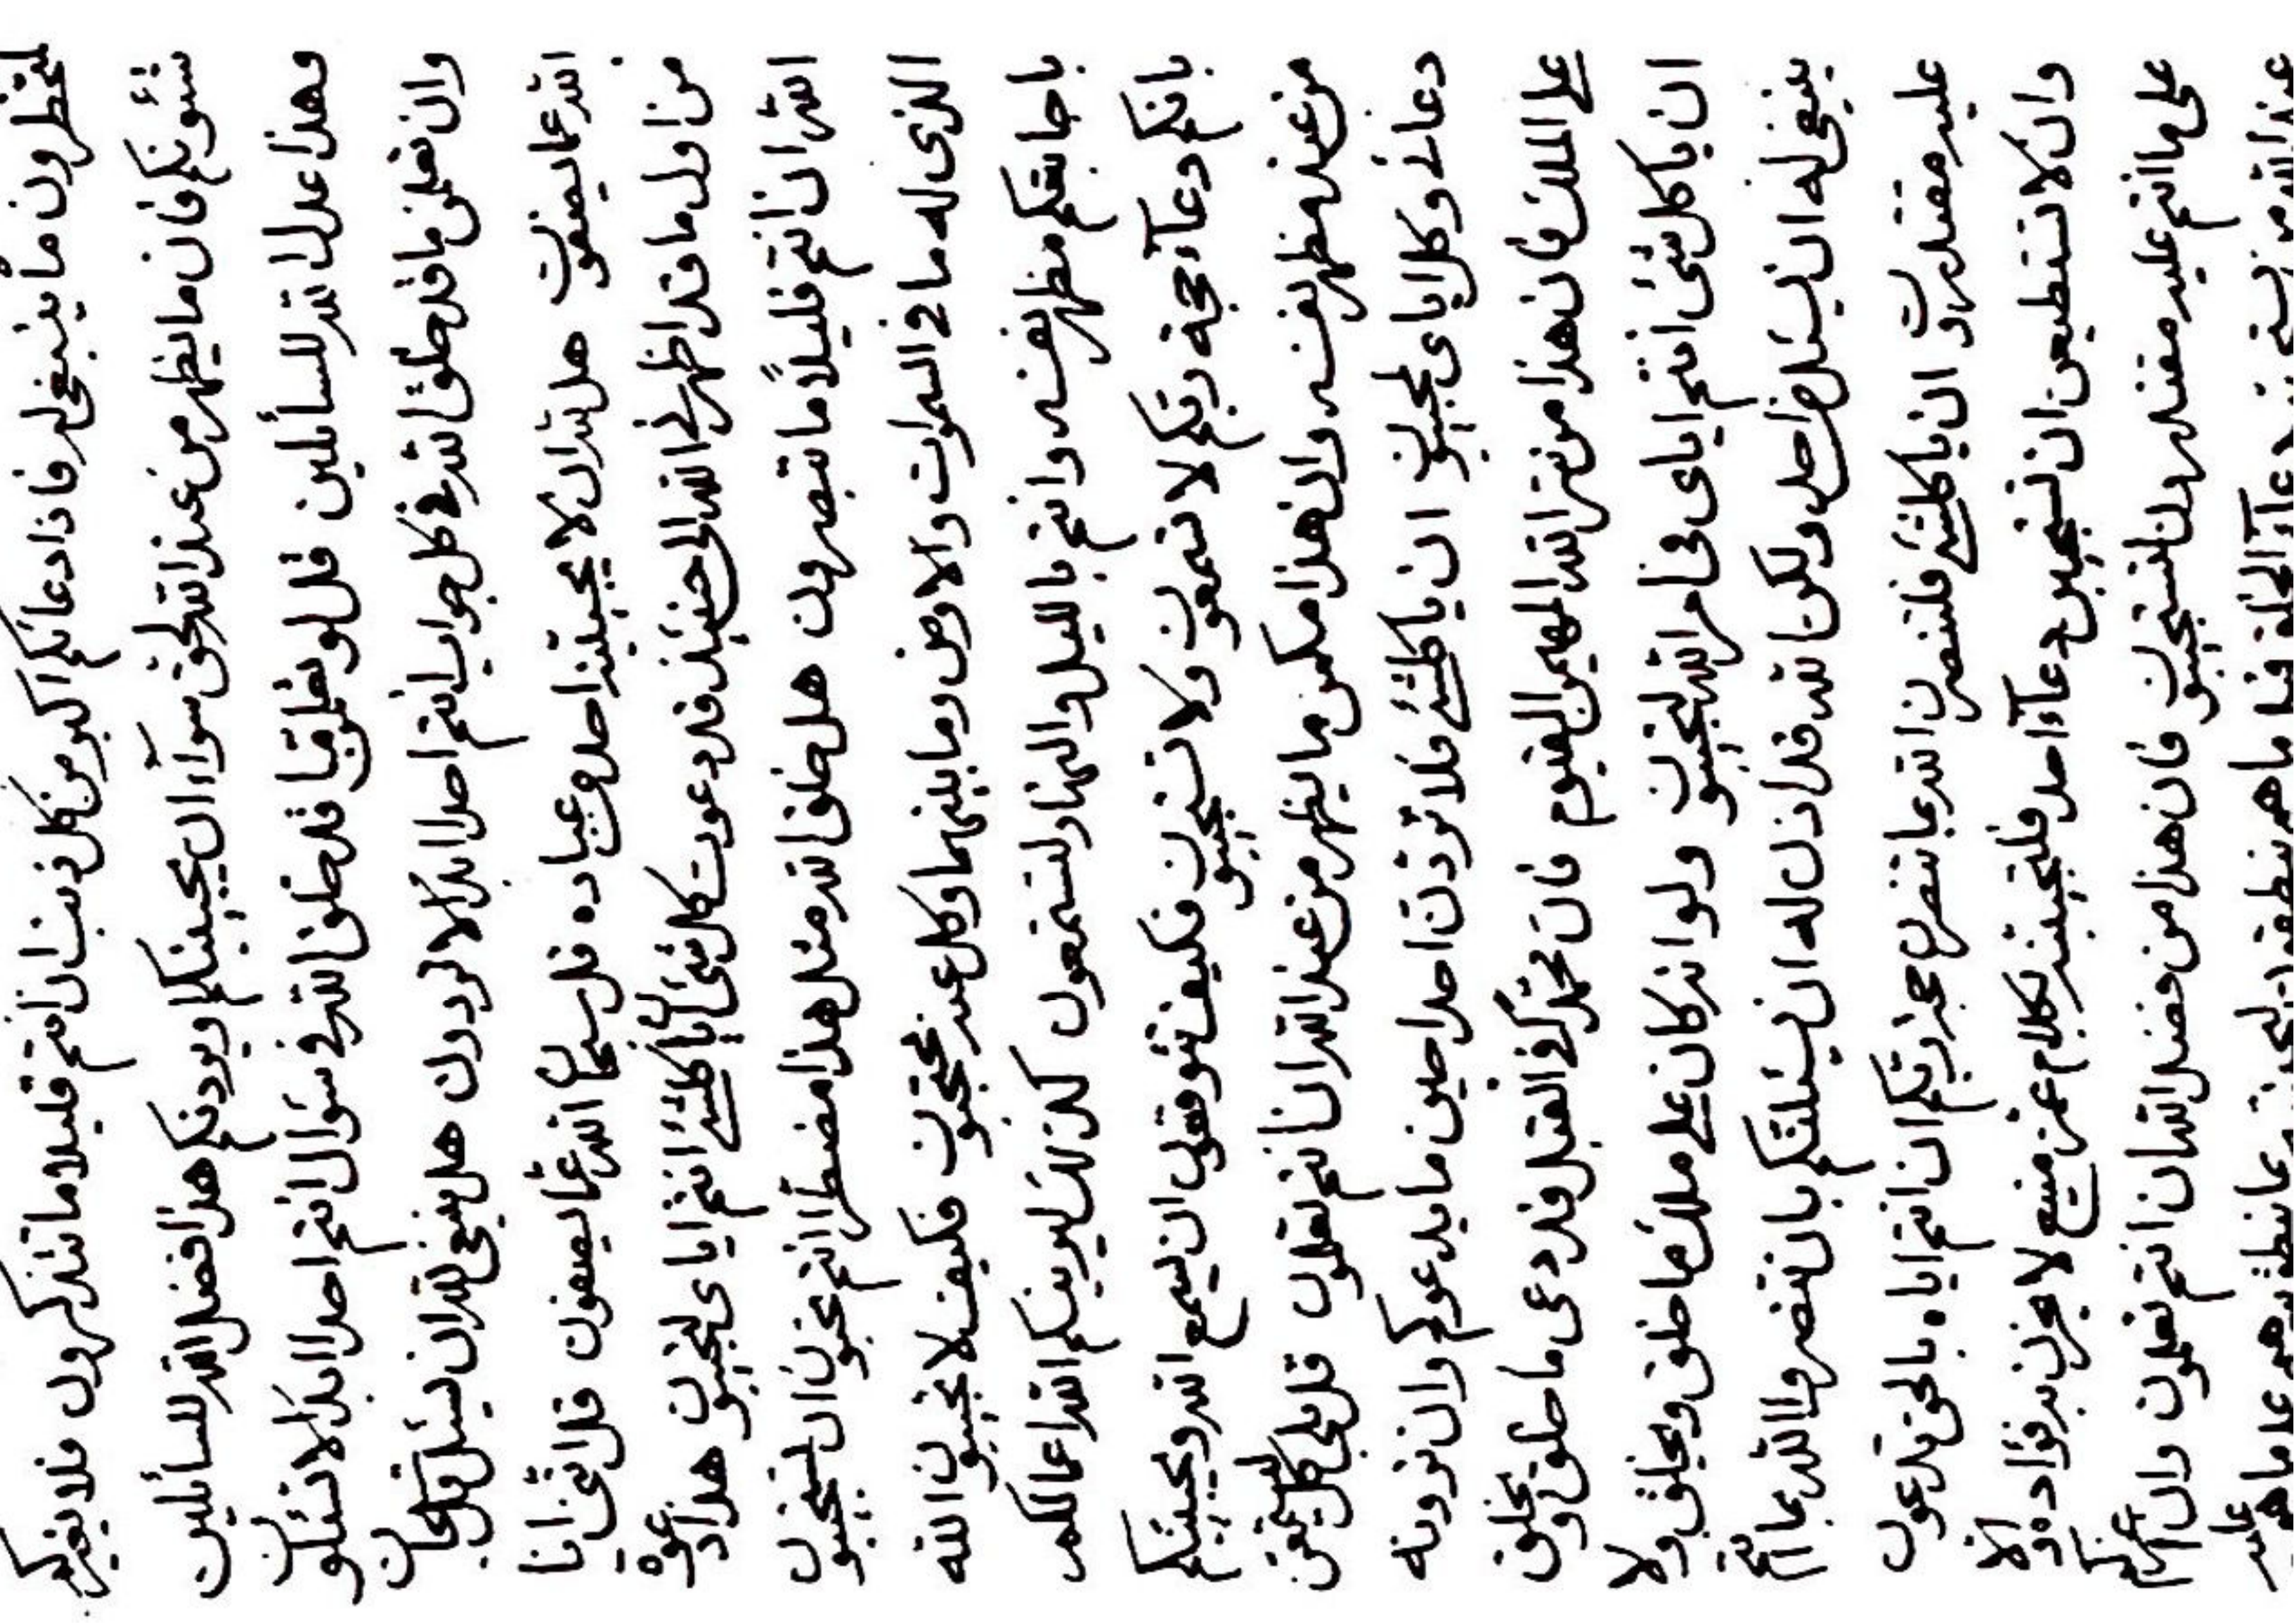 لتحظرون ما ينبغي له فاذا دعائكم اكبر من كل ذنب ان انتم قليلا ما تتذكرون فلا يغيركم
شئونكم فان ما يظهر من عند الله لحق سوآء ان يجيبنكم او يردنكم هذا فضل الله للسائلين
وهذا عدل الله للسائلين قل لو تعلمون ما قد خلق الله في سؤال انتم احدا ابدا لا تسئلون
وان تعلمن ما قد خلق الله في كل جواب انتم احدا ابدا لا تردون هل ينبغي لله ان يسئل قل سبحان
الله عما يصفون هل لله ان لا يجيبنه احد من عباده قل سبحان الله عما يصفون قل انني انا
من اول ما قد اظهرني الله الى حينئذ قد دعوت كل شئ ان يا كلشئ انتم اياي لتجيبون هذا دعوة
الله ان انتم قليلاً ما تبصرون هل خلق الله مثل هذا مضطرا انتم تحبون ان تستجيبون
الذي له ما في السموات والارض وما بينهما وكل عنه محتجبون فكيف لا تجيبون الله
باجابتكم مظهر نفسه وانتم بالليل والنهار لتستمعون كذلك ليرينكم الله اعمالكم
بانكم دعآء حجة ربكم لا تسمعون ولا تستجيبون فكيف تتوقعون ان يسمع الله ويجيبنكم
من عند مظهر نفسه وان هذا ممكن ما يظهر من عند الله ان انتم تعلمون قل بلى كل
دعائه وكلا اياي لمجيبون ان يا كلشئ فلا تردن احدا حين ما يدعوكم وان تردنه
على الملك فان هذا من سر الله المهيمن القيوم فان محمد في القبل قد دعى ما خلق ويخلق
ان يا كل شئ انتم اياي في امر الله لتجيبون ولو انه كان على ملك ما خلق ويخلق ولا
ينبغي له ان يسئل من احد ولكن الله قد اذن له ان يسئلنكم بان تنصروا الله بما انتم
عليه مقتدرون ان يا كلشئ فلتنصرن الله بما تنصرن حجة ربكم ان انتم اياه بالحق تدعون
وان لا تستطيعن ان تستجيبن دعآء احد فلتجيبنه بكلام عز منيع لا يحزن به فؤاده والا
على ما انتم عليه مقتدرون لتستجيبون فان هذا من فضل الله ان انتم تعلمون وان